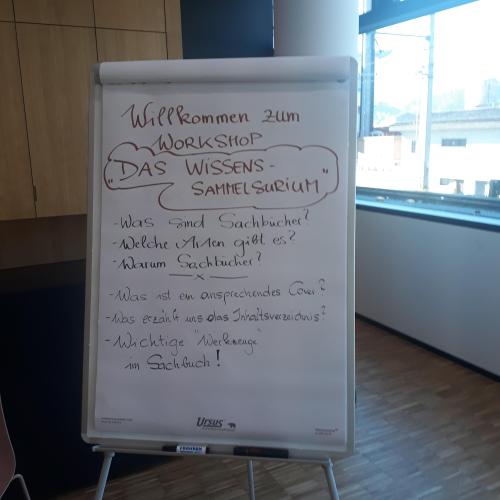 Willkommen zum
WORKSHOP
"DAS WISSENS-
SAMMELSURIUM"
- Was sind Sachbücher?
- Welche Arten gibt es?
- Warum Sachbücher?
— x —
- Was ist ein ansprechendes Cover?
- Was erzählt uns das Inhaltsverzeichnis?
- Wichtige "Werkzeuge"
im Sachbuch!
URSUS